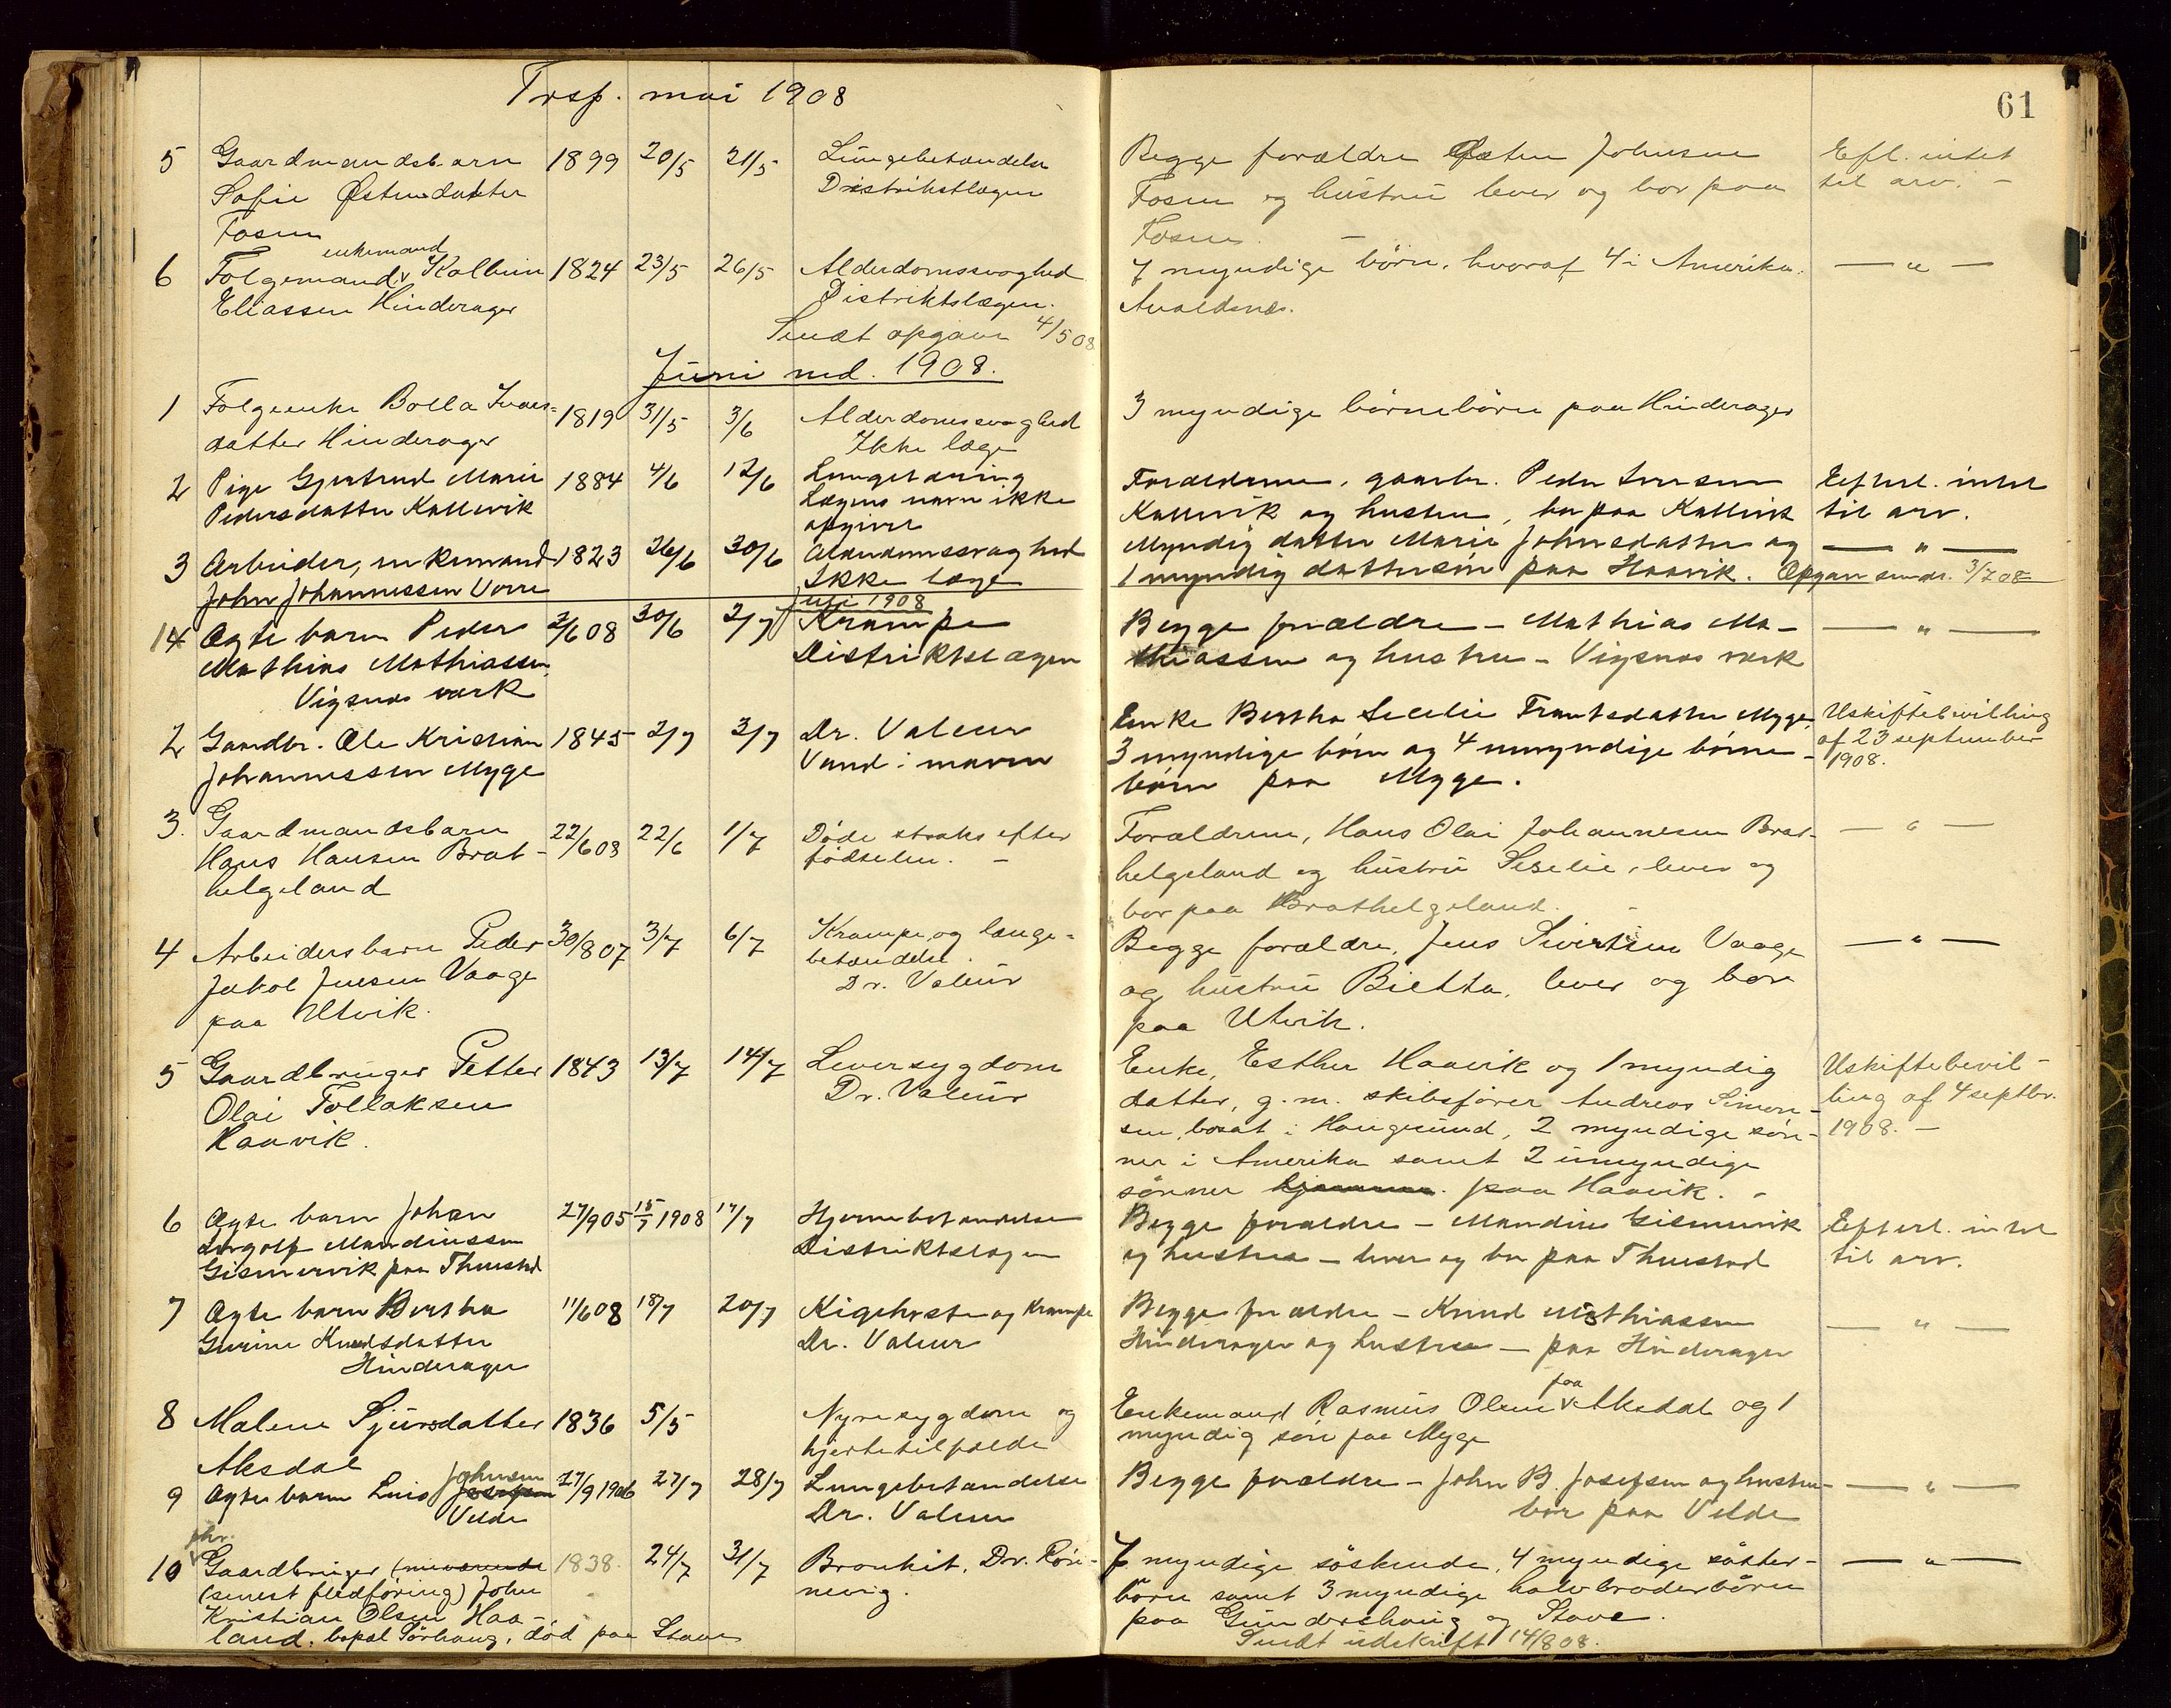 Trsp. mai 1908
61
5 Gaardmandsbarn 1899 20/5 21/5 Lungebetændelse Begge forældre Østen Johnsen Eftl. intet
Sofie Østensdatter Distriktslægen Fosen og hustru lever og bor paa til arv. —
Fosen Fosen. —
enkemand
6 Følgemand Kolbein 1824 23/5 26/5 Alderdomssvaghed 7 myndige børn, hvoraf 4 i Amerika. — " —
Eliassen Hinderager Distriktslægen. Avaldsnes.
Sendt opgave 4/5 08
Juni md. 1908.
1 Følgeenke Bolla Ivers- 1819 31/5 3/6 Alderdomssvaghed 3 myndige børnebørn paa Hinderager
datter Hinderager Ikke læge
2 Pige Gjertrud Marie 1884 4/6 12/6 Lungetæring Forældrene, gaardbr. Peder Iversen Efterl. intet
Pedersdatter Kallevik Lægens navn ikke Kallevik og hustru, bor paa Kallevik til arv.
opgivet
3 Arbeider, enkemand 1823 26/6 30/6 Alderdomssvaghed Myndig datter Marie Johnsdatter og — " —
John Johannessen Vorre Ikke læge 1 myndig dattersøn paa Haavik. Opgave sendt. 3/7 08
Juli 1908
1 Ægte barn Peder 2/6 08 30/6 2/7 Krampe Begge forældre – Mathias Ma- — " —
Mathias Mathiassen, Distriktslægen thiassen og hustru – Vigsnes værk
Vigsnes værk
2 Gaardbr. Ole Kristian 1845 2/7 3/7 Dr. Valeur Enke Bertha Secelie Frantsdatter Myge, Uskiftebevilling
Johannessen Myge Vand i maven 3 myndige børn og 4 umyndige børne- af 23 september
børn paa Myge. 1908.
3. Gaardmandsbarn 22/6 08 22/6 1/7 Døde straks efter Forældrene, Hans Olai Johannesen Brat- — " —
Hans Hansen Brat- fødselen. — helgeland og hustru Seselie, lever og
helgeland bor paa Brathelgeland.
4 Arbeidersbarn Peder 30/8 07 3/7 6/7 Krampe og lunge- Begge forældre, Jens Sivertsen Vaage — " —
Jakob Jensen Vaage betændelse. og hustru Bietta, lever og bor
paa Utvik. Dr. Valeur paa Utvik.
5 Gaardbruger Petter 1843 13/7 14/7 Leversygdom Enke, Esther Haavik og 1 myndig Uskiftebevil-
Olai Tollaksen Dr. Valeur datter, g. m. skibsfører Andreas Simon- ling af 4 septbr.
Haavik. sen, bosat i Haugesund, 2 myndige søn- 1908. —
ner i Amerika samt 2 umyndige
sønner hjemme. paa Haavik.
6 Ægte barn Johan 27/9 05 15/7 1908 17/7 Hjernebetændelse Begge forældre – Mandius Gismervik Efterl. intet
Ingolf Mandiussen Distriktslægen og hustru – lever og bor paa Thuestad til arv.
Gismervik paa Thuestad
7 Ægte barn Bertha 11/6 08 18/7 20/7 Kighoste og krampe Begge forældre – Knud Mathiassen — " —
Gurine Knudsdatter Dr. Valeur Hinderager og hustru – paa Hinderager
Hinderager
8 Malene Sjursdatter 1836 5/5 Nyresygdom og Enkemand Rasmus Olsen paa Aksdal og 1
Aksdal hjertetilfælde myndig søn paa Myge
9 Ægte barn Luis Josefsen Johnsen 27/9 1906 27/7 28/7 Lungebetændelse Begge forældre – John B. Josefsen og hustru – — " —
Velde Dr. Valeur bor paa Velde
fhv.
10 Gaardbruger (nuværende 1838. 24/7 31/7 Bronkit, Dr. Røn- 7 myndige søskende, 4 myndige søster- — " —
(senest fledføring) John nevig. børn samt 3 myndige halvbroderbørn
Kristian Olsen Haa- paa Gundershaug og Stave.
land, bopæl Sørhaug, død paa Stave Sendt udskrift 14/8 08.